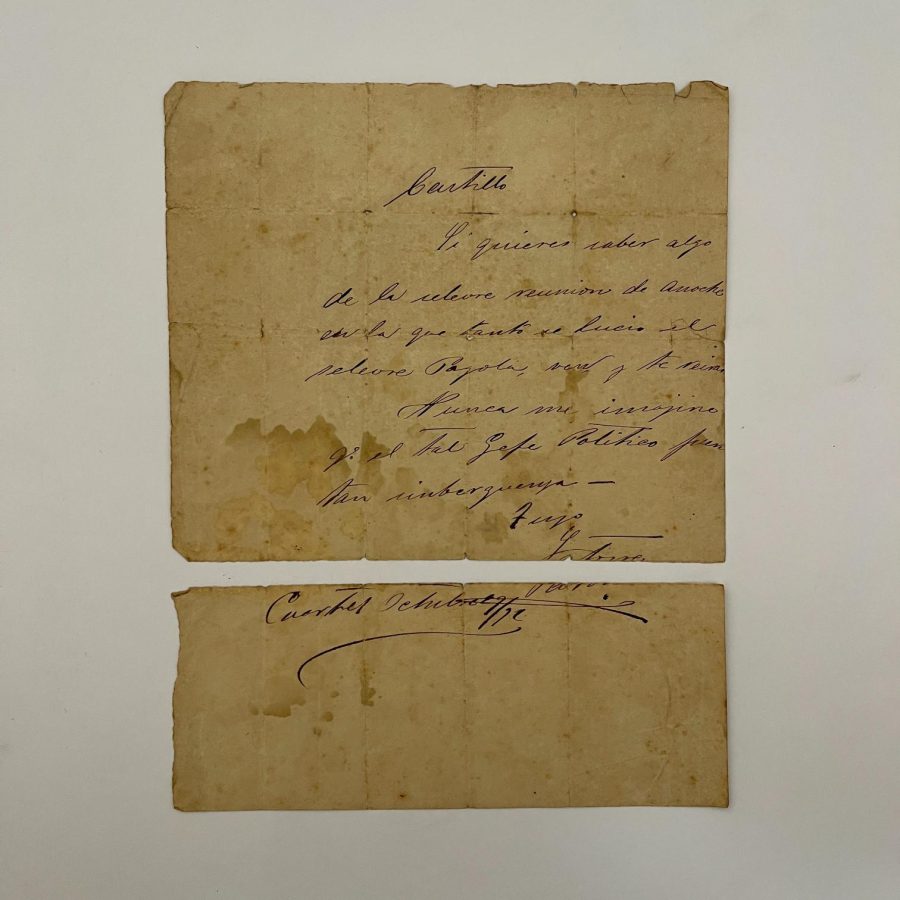 Castillo
Si quieres saber algo
de la selevre reunion de anoche
en la que tanto se lucio el
selevre Pagola, ven y te reiras
Nunca me imajino
qe el tal Gefe Politico fuera
tan sinberguenza —
Tuyo
Cuartel Octubre